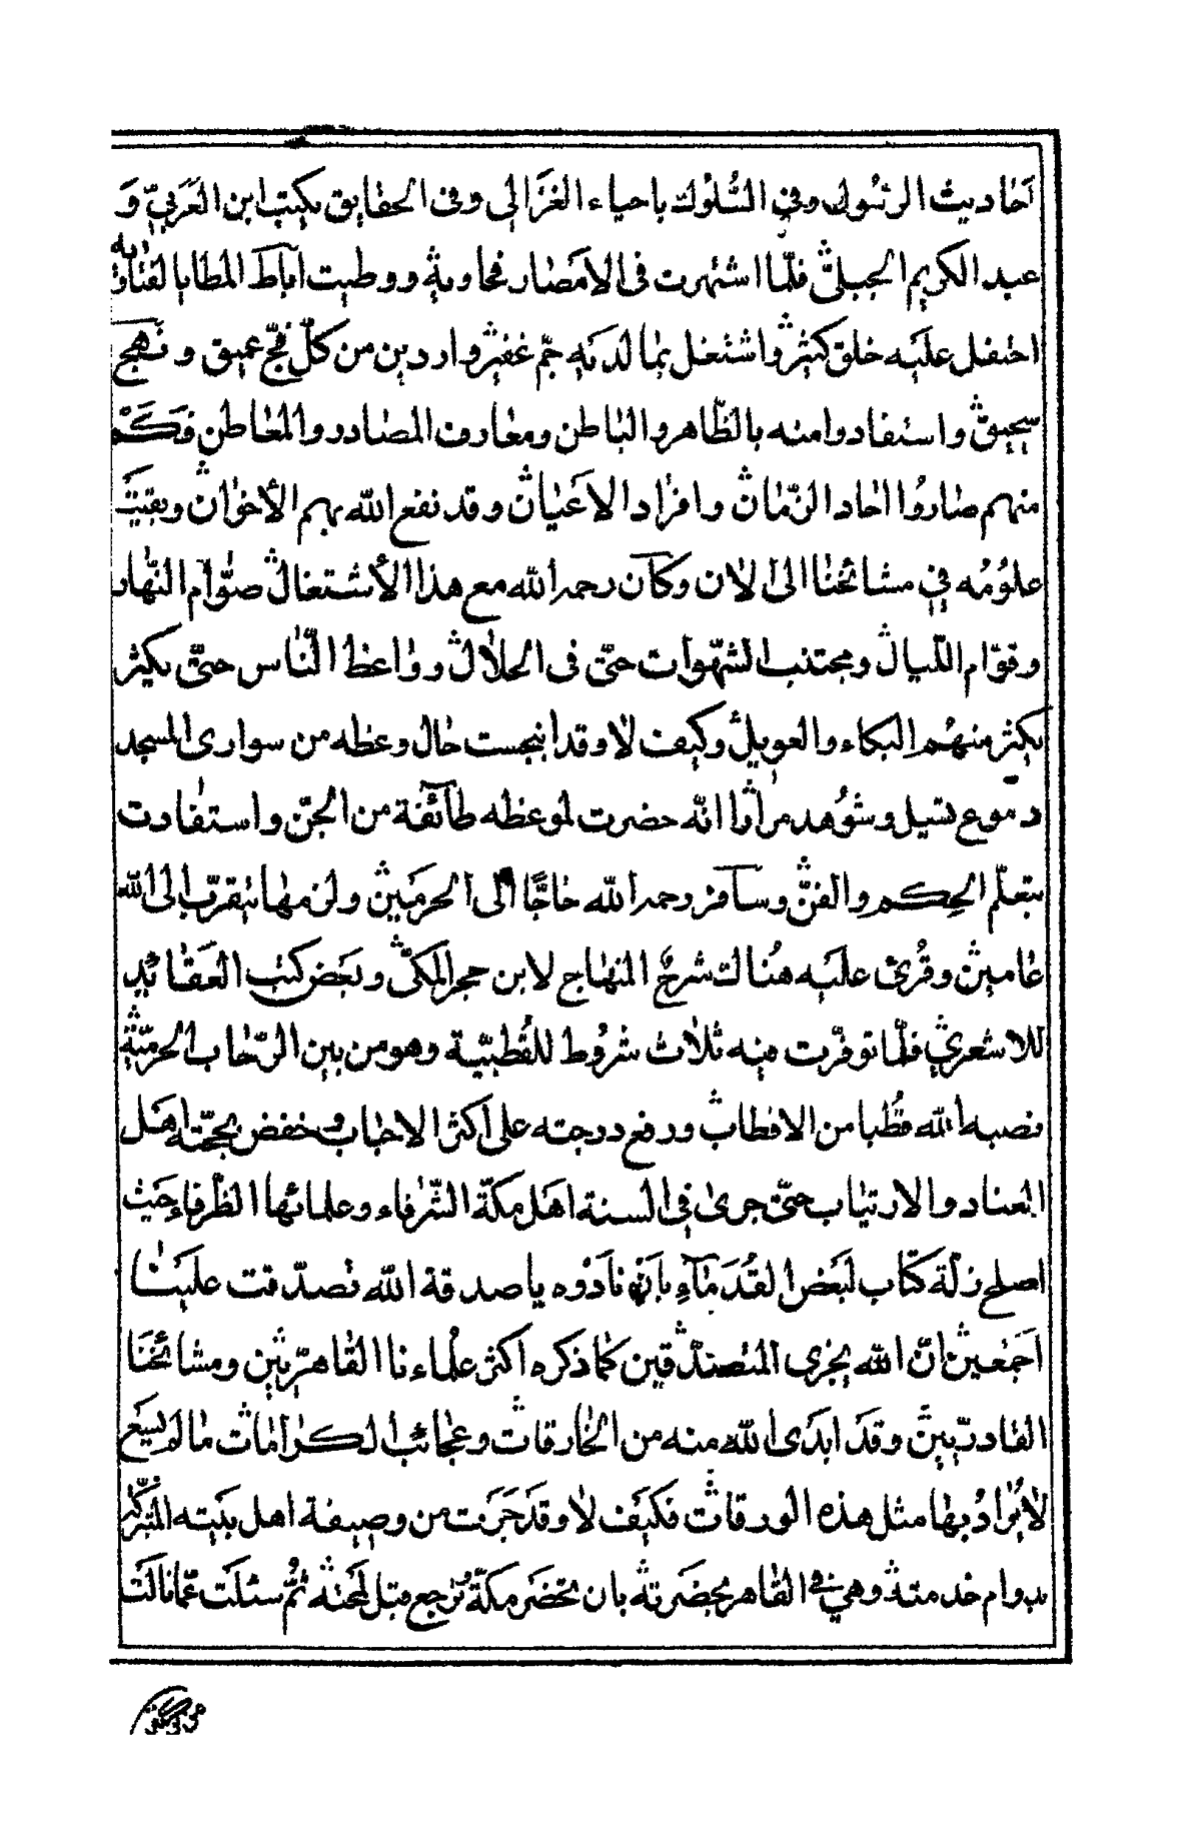 اَحاديث الرّسُول وفي السُّلوُك باحياء الغزَالِي وفى الحقايق بكتب ابن العَرَبيّ وَ
عبد الكريم الجبلىّ فلّما اشتهرت فى الامَصار فحاوية ووطبت اٰباط المطايا لقناته
احتفل عليَه خلق كثير واشتغل بما لديَه جمّ غفير واردين من كلّ فجّ عميق و نهج
سحيق واستفادوا منه بالظّاهر والباطن ومعارف المصادر والمخاطن فكَمْ
منهم صارُوا اٰحاد الزّمان وافراد الاعَيان وقد نفع الله بهم الأخوان وبقيت
علوُمُه في مشائخنا الى الان وكان رحمه الله مع هذا الأشتغال صوّام النّهار
وقوّام اللّيال ومجتنب الشّهوات حتّى فى الحلال وواعظ النّاس حتّى يكثر
يكثر منهُم البكاء والعويل وكيف لا وقد انبجست حال وعظه من سوارى المسجد
دموع تسيل وشوُهد مرارا انّه حضرت لموعظه طآئفة من الجنّ واستفادت
بتعلّم الحِكم والفنّ وسآفر رحمه الله حاجًّا الى الحرمَين ولزمها تبقرّب الى الله
عامين وقرئ عليَه هُناك شرحٌ المنهاج لابن حجر المكىّ وبَعض كتب العَقائد
للاشعريّ فلّما توفرّت منِه ثلاث شرُوط للقُطبيّة وهو من بين الرّحاب الحرميّة
نصبه الله قُطبا من الاقطاب ورفع درجته على اكثر الاحباب وخفض بحجّته اهَل
العناد والارتياب حتّى جرى في السنة اهَل مكّة الشّرفاء وعلمائها الظّرفاء حَيث
اصلح زلّة كتّاب لبَعض القُدَمآءِ بانّهم نادَوُه يا صدقة الله تصدّقت عليَنا
اجَمعين انّ الله يجزى المتُصدّقين كما ذكره اكثر علُماءنا القاهريّين ومشائخنَا
القادريّين وقَد ابدَى الله منه من الخارقات وعجائب الكرامات ما لم يسَع
لايُرادُ بها مثل هذه الورقات فكيَف لا وقَد جَرَت من وصيفة اهل بيَته المتبرّكه
بدوام خدمته وهي في القاهر بحضَرته بان تحضَر مكّة وُترجع قبل لمحَته ثُمّ سئلَت عمّا نالَت